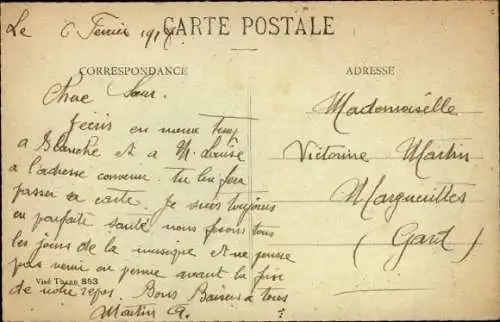 Le 6 Fevrier 1917
CARTE POSTALE
CORRESPONDANCE
ADRESSE
Chae Sœur.
J'ecris en meme temp
a Blanche et a M. Louise
a l'adresse convenue. tu lui fera
passer sa carte. Je suis toujours
en parfaite santé nous faisons tous
les jours de la musique et ne pense
pas venir en perme avant la fin
de notre repos. Bons Baisers a tous
Martin A.
Visé Thann 853
Mademoiselle
Victorine Martin
Margueritles
(Gard)